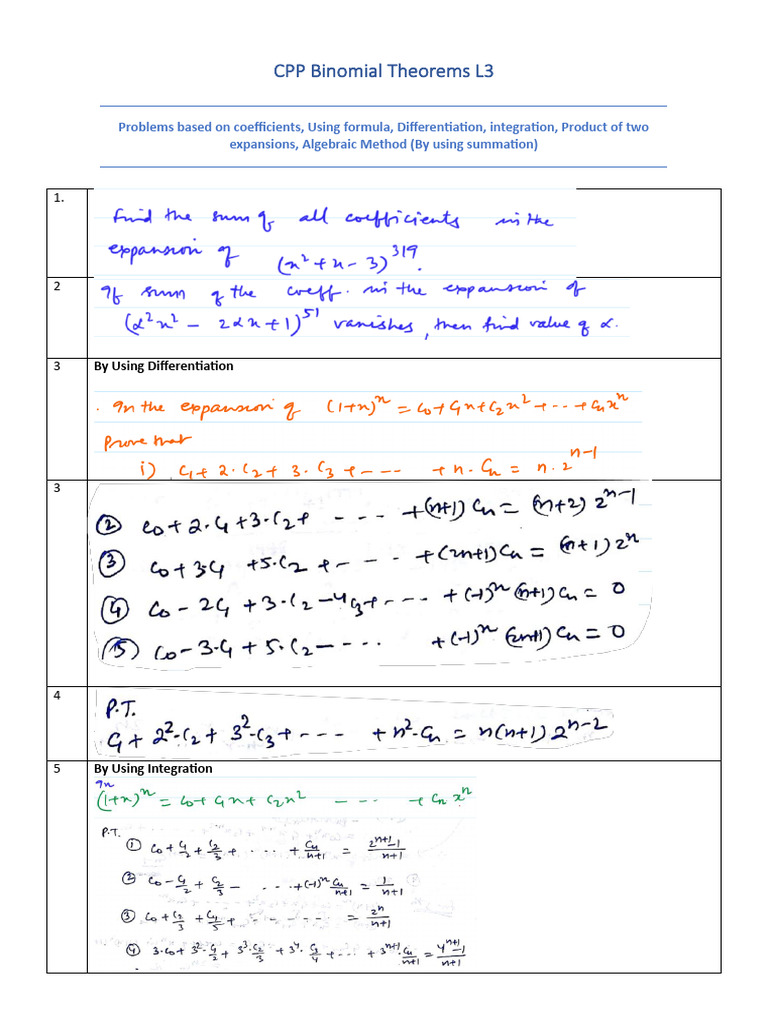 CPP Binomial Theorems L3
Problems based on coefficients, Using formula, Differentiation, integration, Product of two
expansions, Algebraic Method (By using summation)
1.
Find the sum of all coefficients in the
expansion of (x² + x - 3)³¹⁹.
2
If sum of the coeff. in the expansion of
(α²x² - 2αx + 1)⁵¹ vanishes, then find value of α.
3
By Using Differentiation
. In the expansion of (1+x)ⁿ = C₀ + C₁x + C₂x² + - - + Cₙxⁿ
Prove that
i) C₁ + 2·C₂ + 3·C₃ + - - - - + n·Cₙ = n·2ⁿ⁻¹
3
② C₀ + 2·C₁ + 3·C₂ + - - - - + (n+1)Cₙ = (n+2) 2ⁿ⁻¹
③ C₀ + 3C₁ + 5·C₂ + - - - - + (2n+1)Cₙ = (n+1) 2ⁿ
④ C₀ - 2C₁ + 3·C₂ - 4C₃ + - - - - + (-1)ⁿ (n+1)Cₙ = 0
⑤ C₀ - 3·C₁ + 5·C₂ - - - - - + (-1)ⁿ (2n+1)Cₙ = 0
4
P.T.
C₁ + 2²·C₂ + 3²·C₃ + - - - - + n²·Cₙ = n(n+1) 2ⁿ⁻²
5
By Using Integration
In
(1+x)ⁿ = C₀ + C₁x + C₂x² - - - - + Cₙxⁿ
P.T.
① C₀ + C₁/2 + C₂/3 + - - - - + Cₙ/n+1 = 2ⁿ⁺¹-1/n+1
② C₀ - C₁/2 + C₂/3 - - - - + (-1)ⁿ Cₙ/n+1 = 1/n+1
③ C₀ + C₂/3 + C₄/5 + - - - - - = 2ⁿ/n+1
④ 3·C₀ + 3²·C₁/2 + 3³·C₂/3 + 3⁴·C₃/4 + - - - + 3ⁿ⁺¹·Cₙ/n+1 = 4ⁿ⁺¹-1/n+1